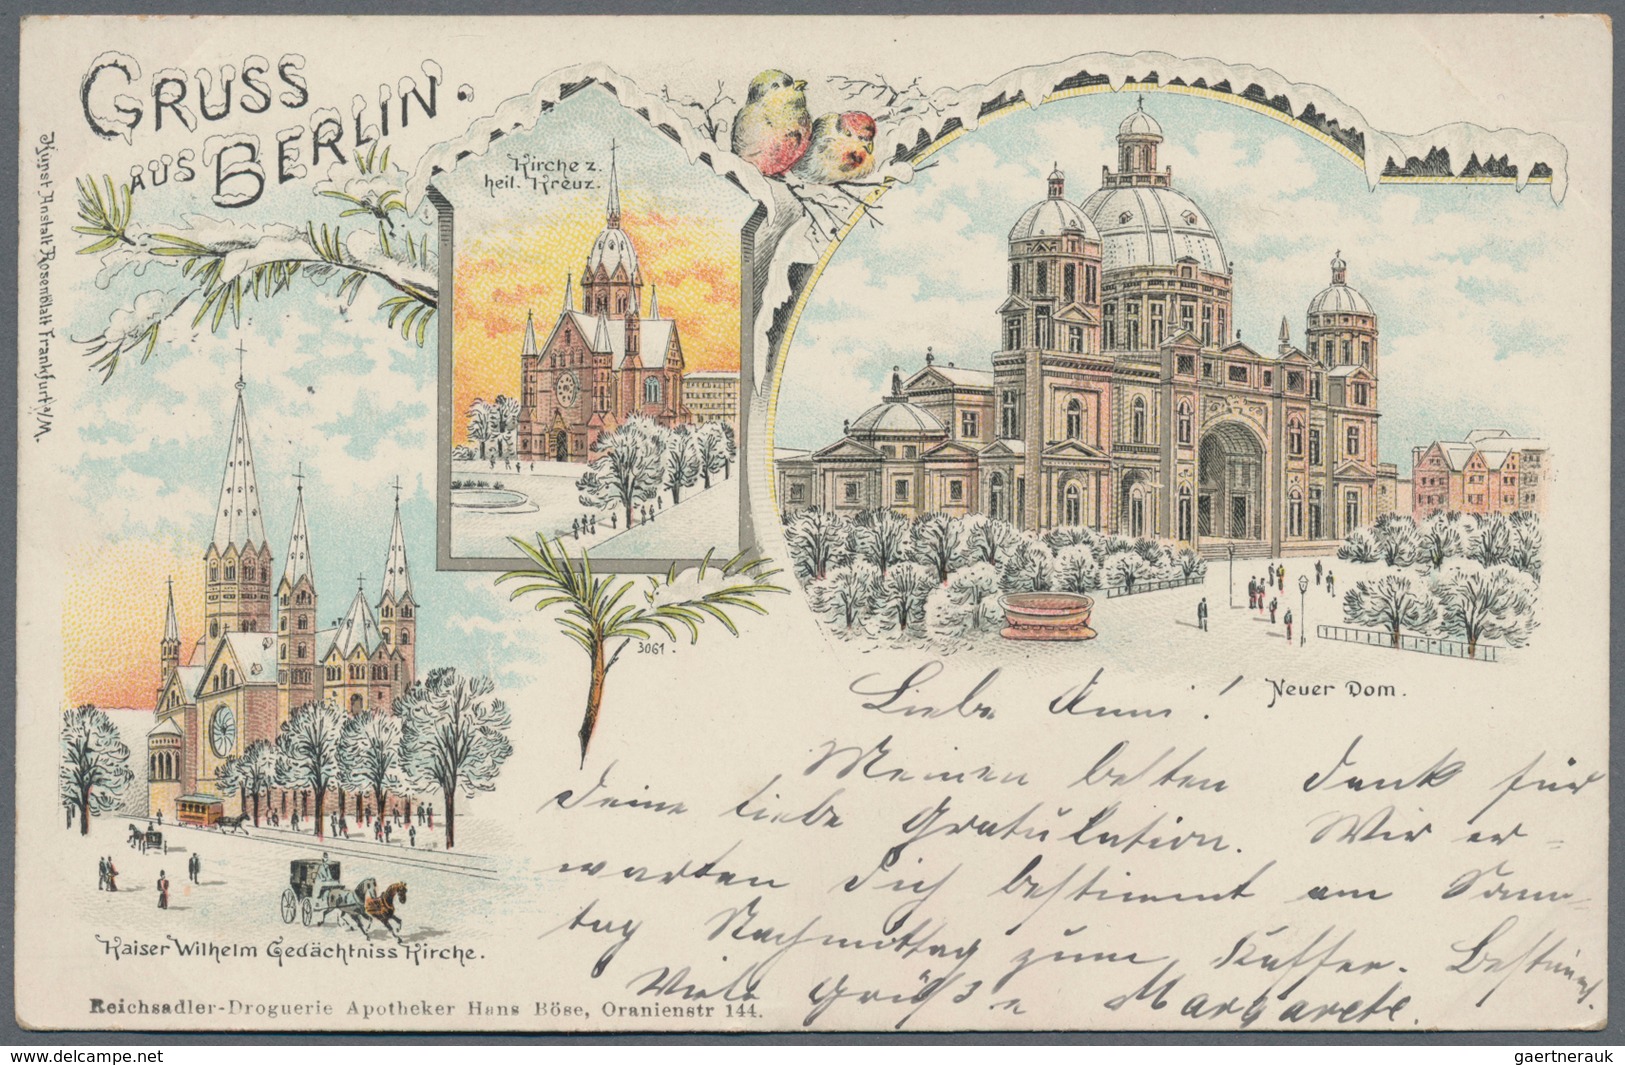 GRUSS
AUS BERLIN.
Kunst-Anstalt Rosenblatt Frankfurt a/M.
Kirche z.
heil. Kreuz.
3061.
Neuer Dom.
Kaiser Wilhelm Gedächtniss Kirche.
Reichsadler-Droguerie Apotheker Hans Böse, Oranienstr 144.
Liebe Anni!
Meinen besten Dank für
Deine liebe Gratulation. Wir er=
warten Dich bestimmt am Sonn=
tag Nachmittag zum Kaffee. Bestimmt.
Viele Grüße Margarete.
www.delcampe.net
gaertnerauk